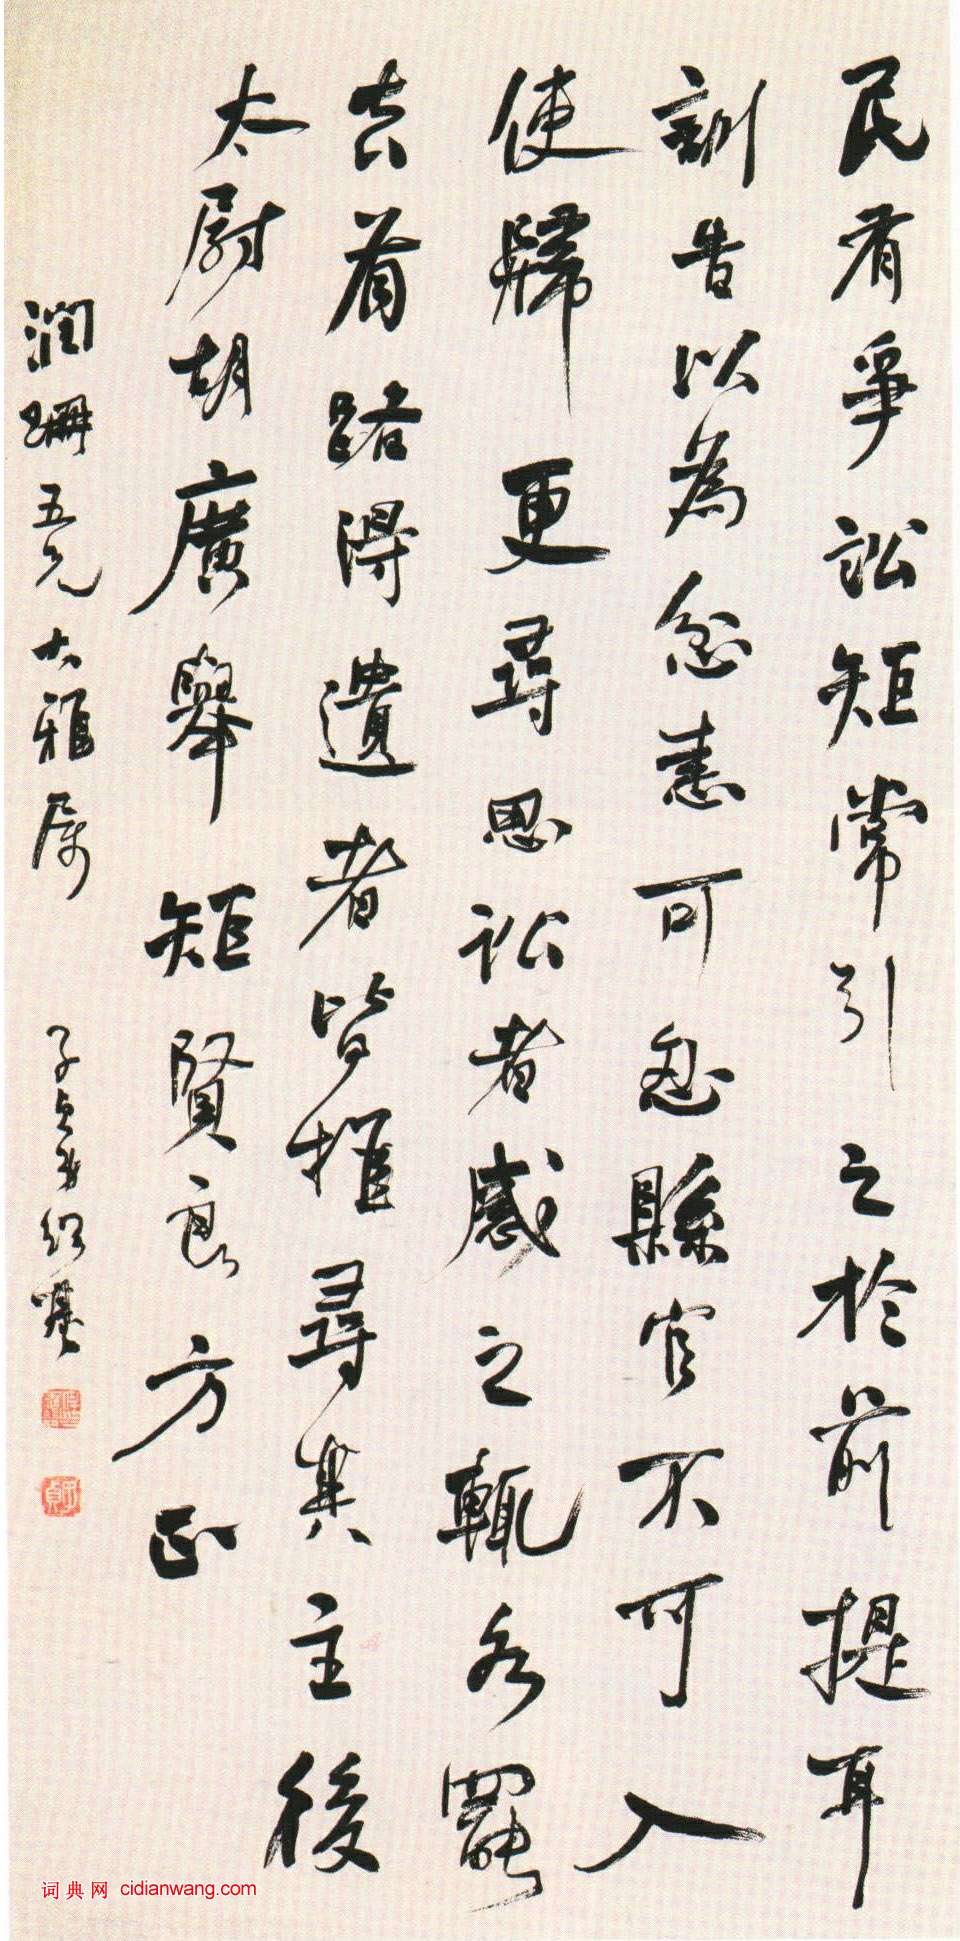 民有爭訟矩常引之於前提耳
訓告以為忿恚可忍縣官不可入
使歸更尋思訟者感之輒各罷
去有路得遺者皆推尋其主後
太尉胡廣舉矩賢良方正
潤珊五兄大雅属
子貞弟紹基
子貞
词典网 cidianwang.com